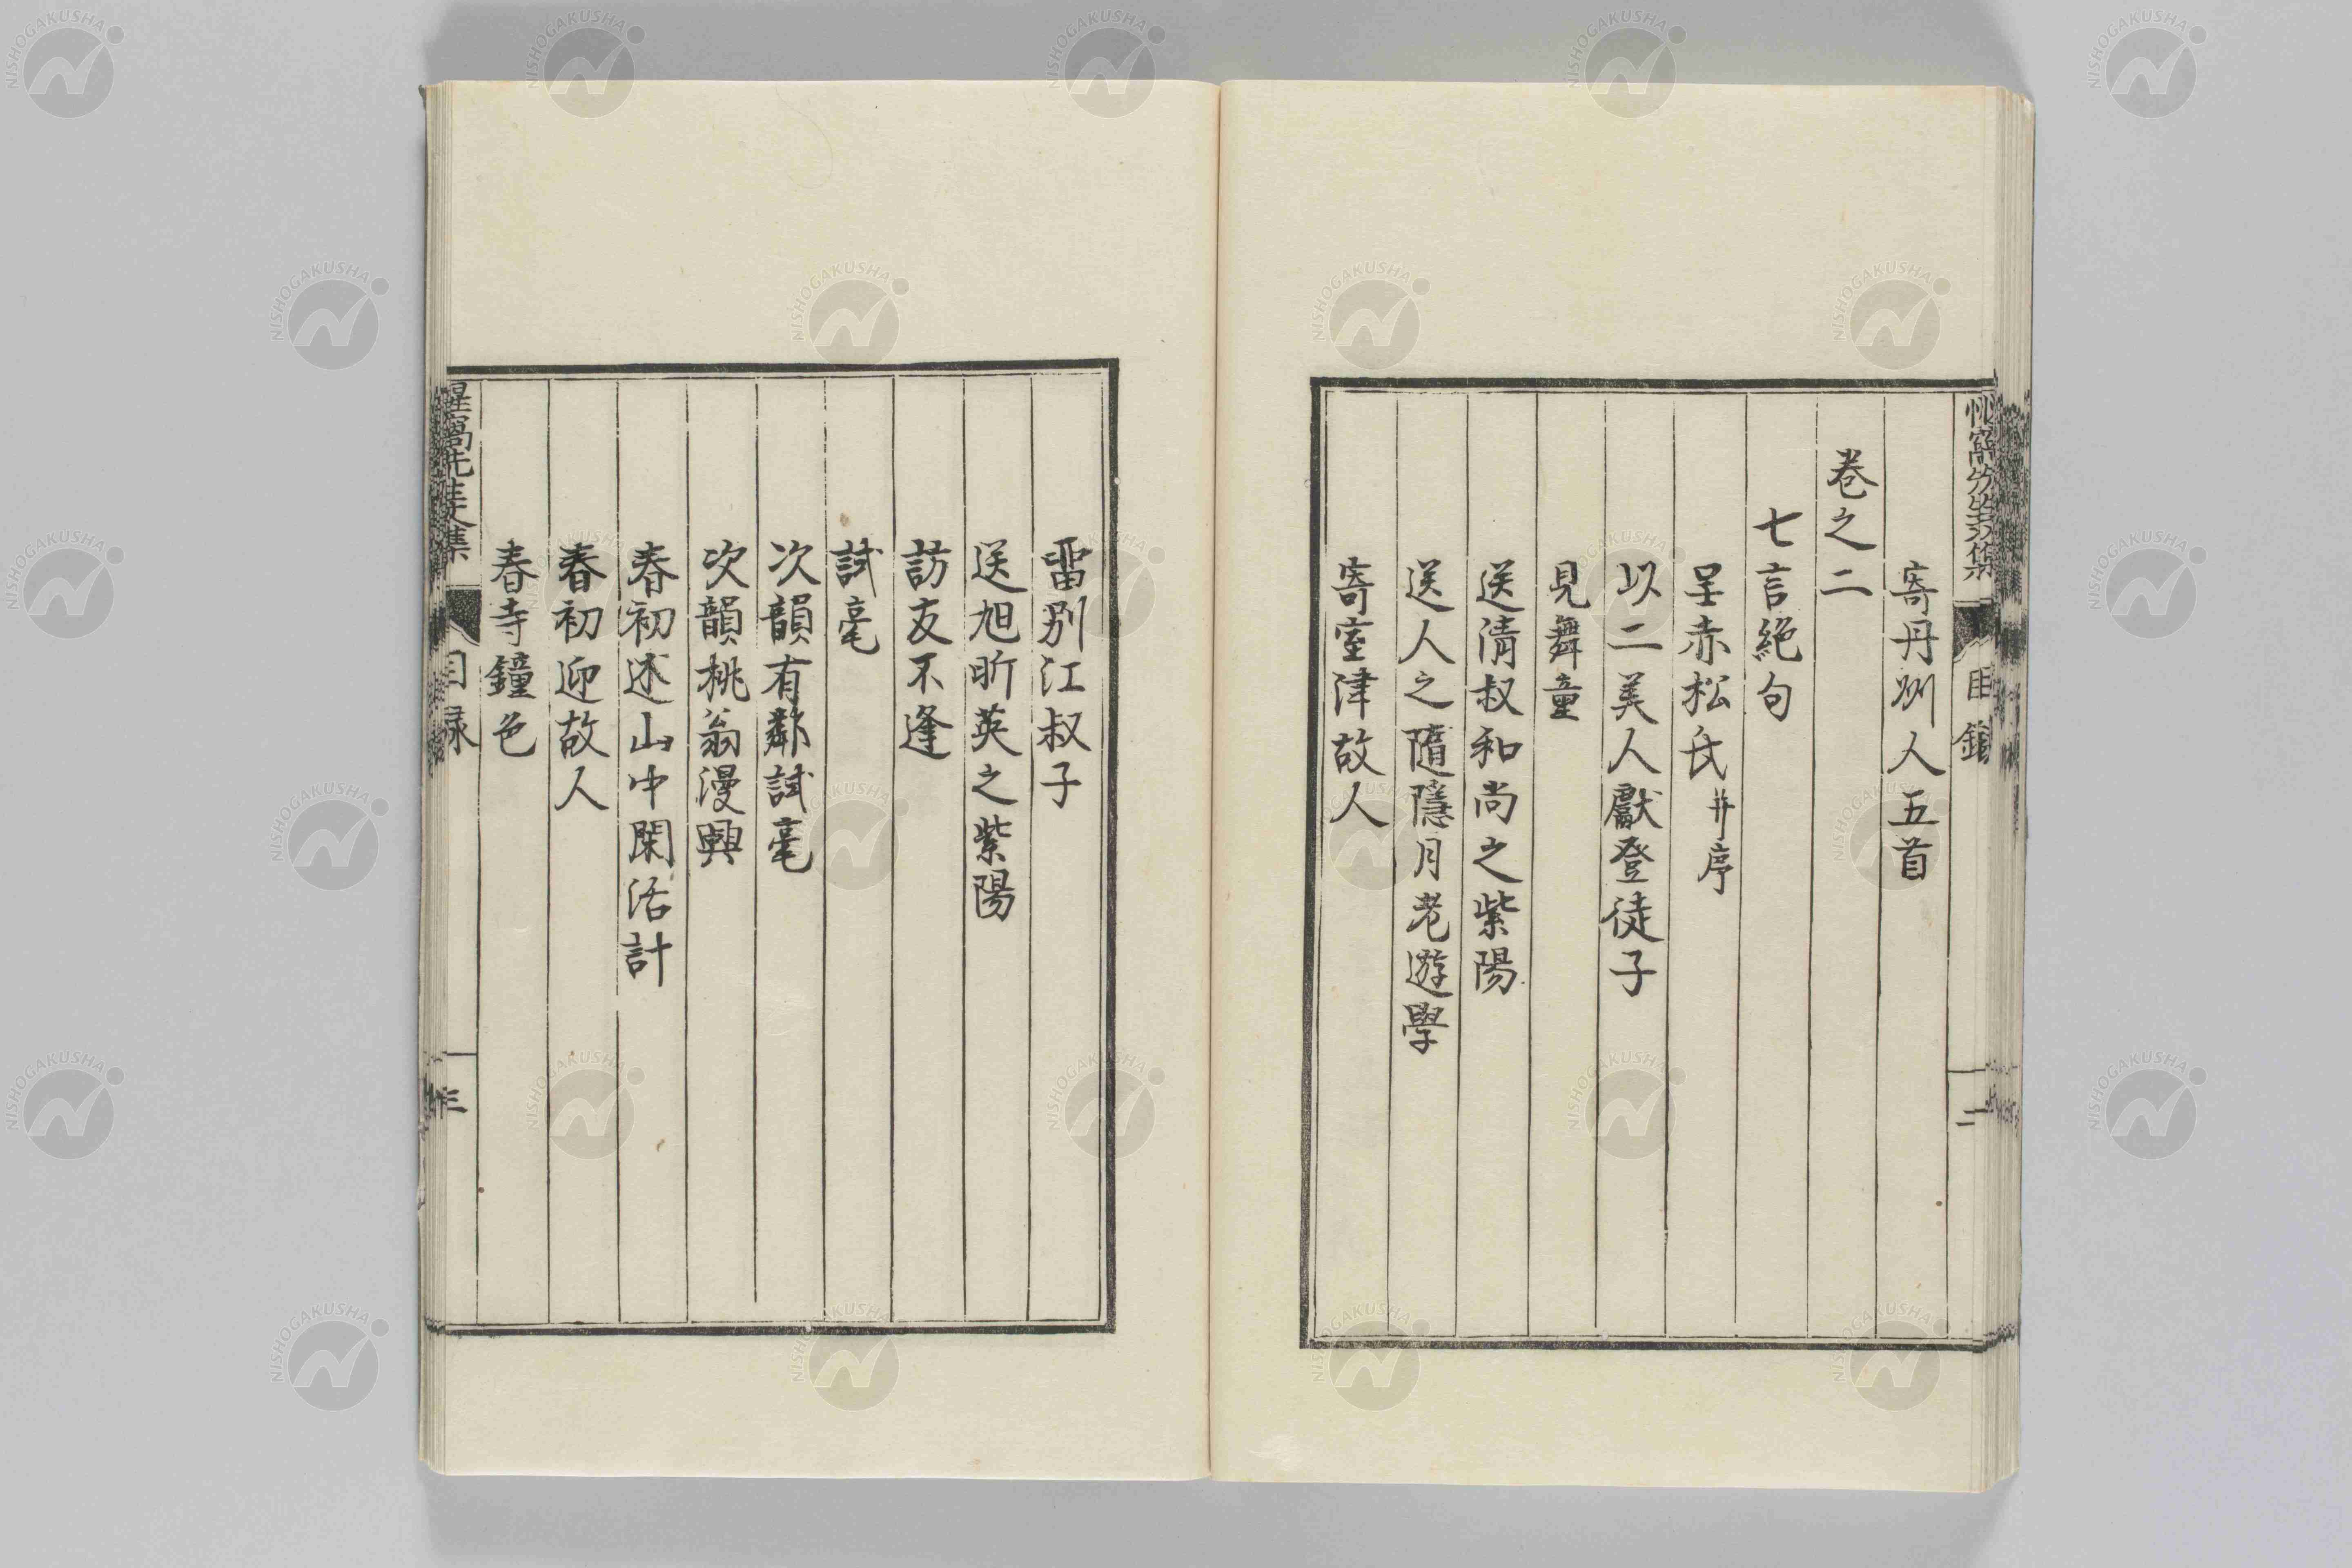 寄丹州人五首
卷之二
七言絕句
呈赤松氏并序
以二美人獻登徒子
見舞童
送清叔和尚之紫陽
送人之隨隱月老遊學
寄室津故人
目錄
二
畱別江叔子
送旭昕英之紫陽
訪友不逢
試毫
次韻有鄰試毫
次韻桃翁漫興
春初述山中閑活計
春初迎故人
春寺鐘色
惺窩先生文集
目錄
三
NISHOGAKUSHA